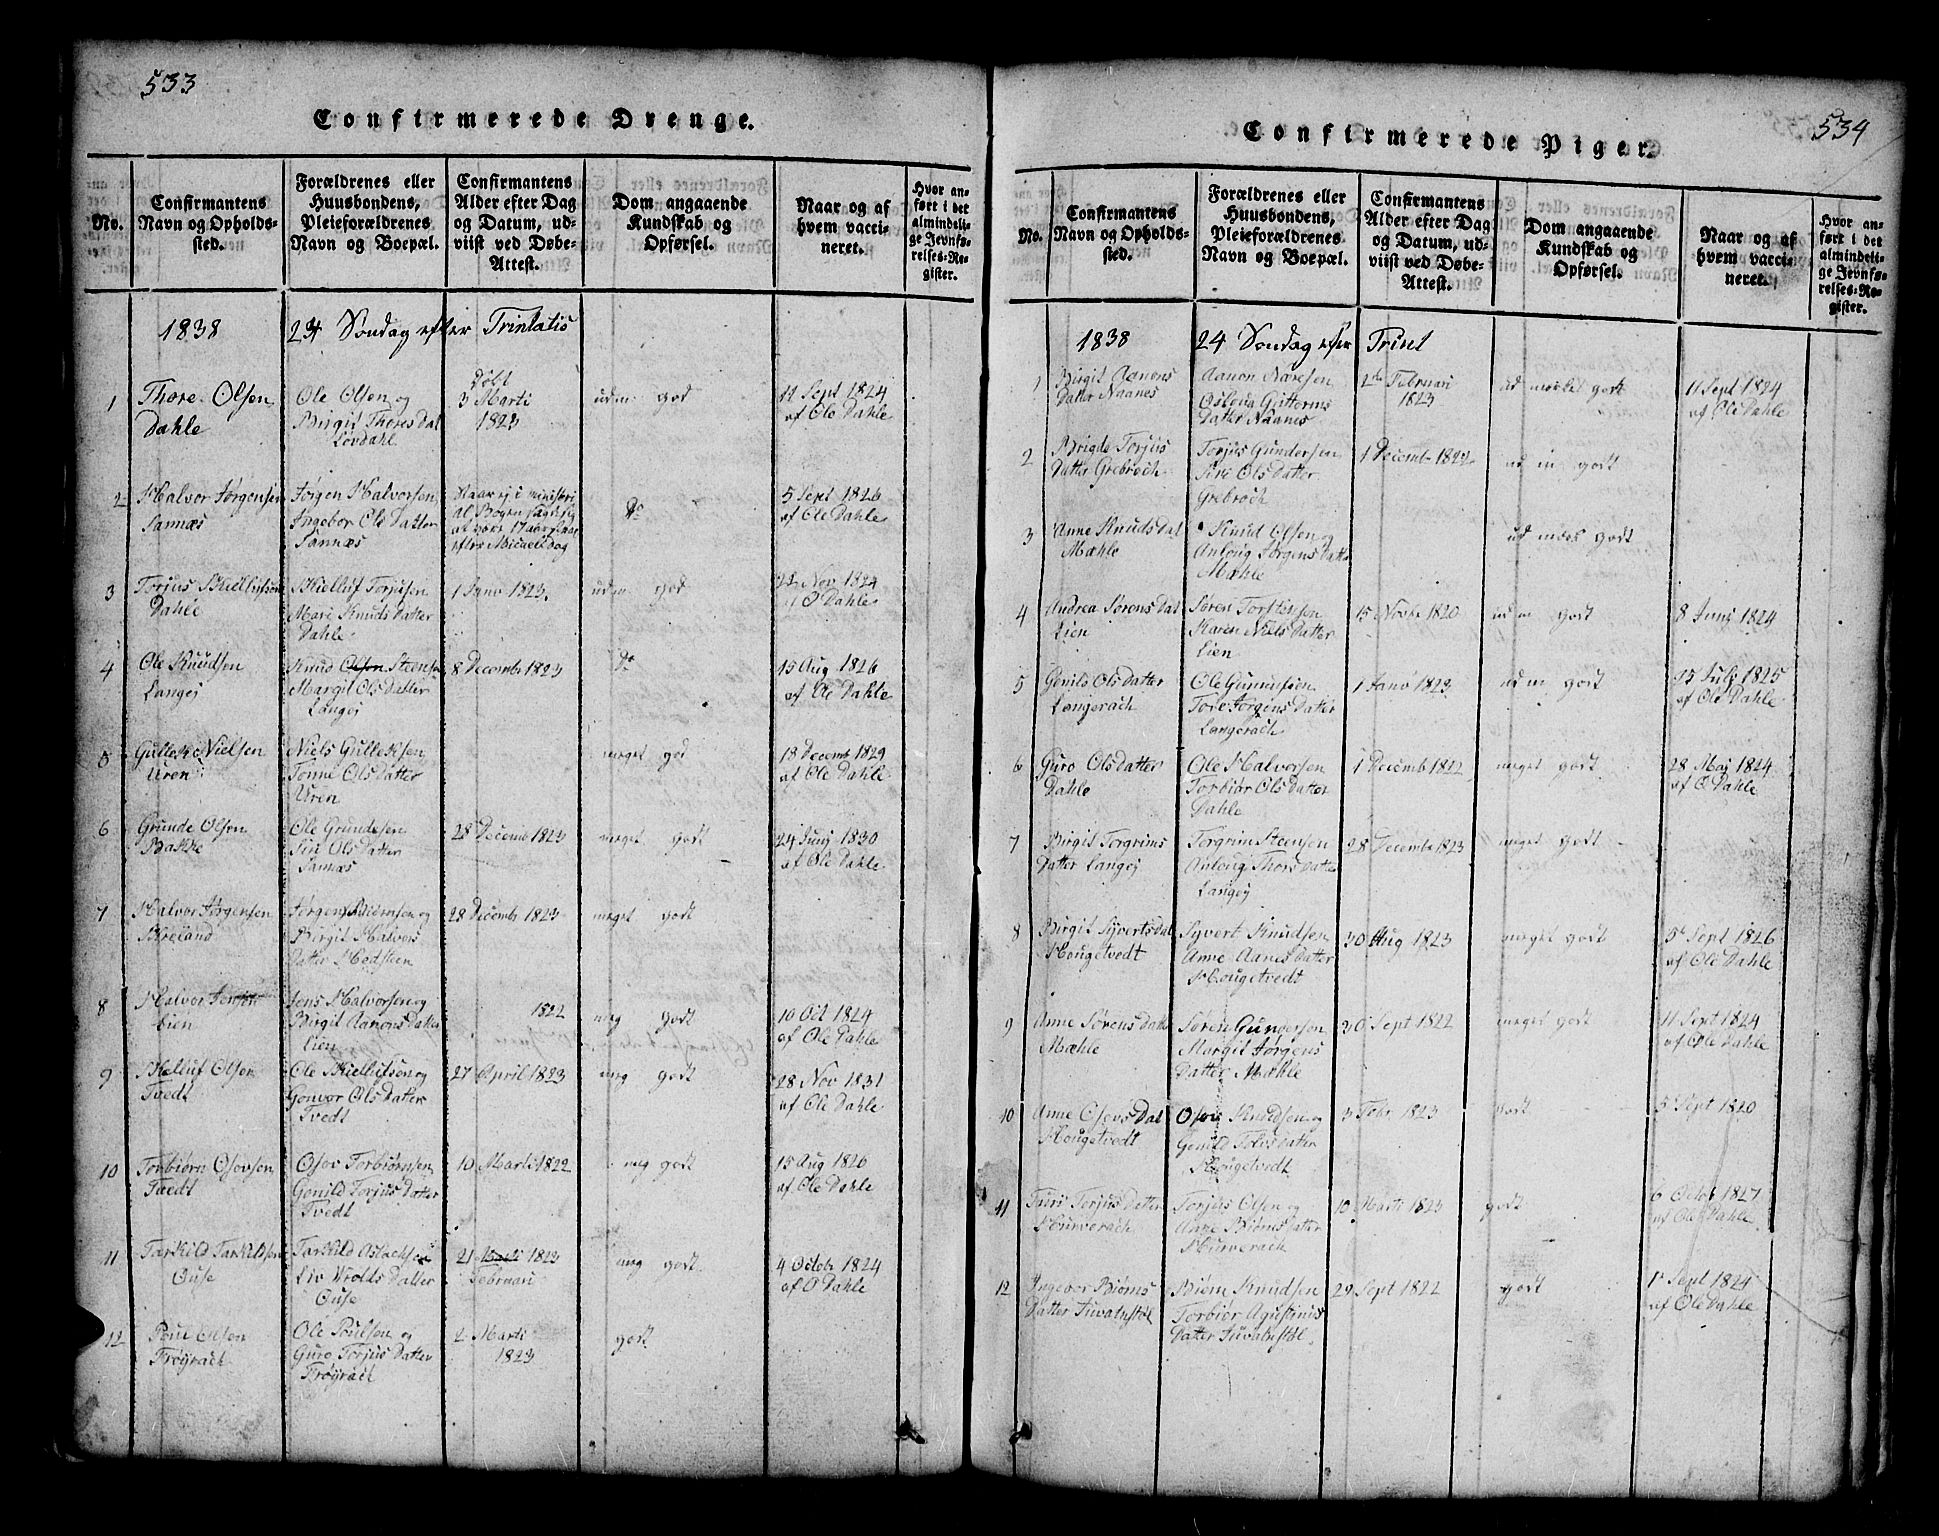 533
Confirmerede Drenge.
No.
Confirmantens
Navn og Opholds-
sted.
Forældrenes eller
Huusbondens,
Pleieforældrenes
Navn og Boepæl.
Confirmantens
Alder efter Dag
og Datum, ud-
viist ved Døbe-
Attest.
Dom angaaende
Kundskab og
Opførsel.
Naar og af
hvem vacci-
neret.
Hvor an-
ført i det
almindeli-
ge Jevnfø-
relses-Re-
gister.
1838 24 Søndag efter Trinitatis
1 Thore Olsen
Dahle
Ole Olsen og
Birgit Thores Dat
Løvdahl
Døbt
3 Marti
1823
udm god
11 Sept 1824
af Ole Dahle
2 Halvor Jørgensen
Sannæs
Jørgen Halvorsen
Ingebor Ole Datter
Sannæs
Staar ej i ministeri
al Bogen
at være 17 aar
efter Micaelsdag
Do
5 Sept 1826
af Ole Dahle
3 Torjus Skiellufsen
Dahle
Skielluf Torjusen
Mari Knuds Datter
Dahle
1 Janv 1823
udm god
22 Nov 1824
af O Dahle
4 Ole Knudsen
Langej
Knud Olsen Steensen
Margit Ols Datter
Langej
8 Decemb 1823
Do
15 Aug 1826
af Ole Dahle
5 Gullek Nielsen
Uren
Niels Gulleksen
Tonne Ols Datter
Uren
meget god
18 Decemb 1829
af Ole Dahle
6 Grunde Olsen
Bakke
Ole Grundesen
Siri Ols Datter
Sannæs
28 Decemb 1823
meget godt
24 Junj 1830
af Ole Dahle
7 Halvor Jørgensen
Skreland
Jørgen Biørnsen og
Birgit Halvors
Datter Hedsteen
28 Decemb 1823
meget godt
8 Halvor Jensen
Lien
Jens Halvorsen og
Birgit Aanons Datter
Lien
1822
meg godt
10 Oct 1824
af Ole Dahle
9 Skelluf Olsen
Tvedt
Ole Skiellufsen og
Gonvor Ols Datter
Tvedt
27 April 1823
meg godt
28 Nov 1831
af Ole Dahle
10 Torbiørn Osovsen
Tvedt
Osov Torbiørnsen
Gonild Torjus Datter
Tvedt
10 Marti 1822
meg godt
15 Aug 1826
af Ole Dahle
11 Tarkild Tarkildsen
Ouse
Tarkild Aslachsen
Liv Wrolds Datter
Ouse
21 Marti 1823
Februari
meg godt
4 Octob 1824
af O Dahle
12 Poul Olsen
Frøyrach
Ole Poulsen og
Guro Torjus Datter
Frøyrach
2 Marti
1823
godt
534
Confirmerede Piger.
No.
Confirmantens
Navn og Opholds-
sted.
Forældrenes eller
Huusbondens,
Pleieforældrenes
Navn og Boepæl.
Confirmantens
Alder efter Dag
og Datum, ud-
viist ved Døbe-
Attest.
Dom angaaende
Kundskab og
Opførsel.
Naar og af
hvem vacci-
neret.
Hvor an-
ført i det
almindeli-
ge Jevnfø-
relses-Re-
gister.
1838 24 Søndag efter Trint
1 Birgit Aanons
Datter Naanes
Aanon Næresen
Oslova Guttorms
Datter Naanes
2de Februari
1823
ud mærket godt
11 Sept 1824
af Ole Dahle
2 Brigde Torjus
Datter Grebroch
Torjus Gundersen
Siri Ols Datter
Grebroch
1 Decemb 1822
ud m godt
3 Anne Knuds Dat
Mæhle
Knud Olsen og
Anloug Jørgens Datter
Mæhle
ud mærk godt
4 Andrea Sørens Dat
Lien
Søren Torstensen
Karen Niels Datter
Lien
15 Novbr 1820
ud m godt
8 Junj 1824
5 Gonild Ols Datter
Langerach
Ole Gunnufsen
Tore Jørgens Datter
Langerach
1 Janv 1823
ud m godt
15 Julj 1825
af Ole Dahle
6 Guro Ols Datter
Dahle
Ole Halvorsen
Torbiør Ols Datter
Dahle
1 Decemb 1822
meget godt
28 Maj 1824
af O Dahle
7 Birgit Torgrims
Datter Langej
Torgrim Steensen
Anloug Thors Datter
Langej
28 Decemb 1823
meget godt
8 Birgit Syverts Dat
Hougetvedt
Syvert Knudsen
Anne Aanes Datter
Hougetvedt
30 Aug 1823
meget godt
5 Sept 1826
af Ole Dahle
9 Anne Sørens Datter
Mæhle
Søren Gundersen
Margit Jørgens
Datter Mæhle
30 Sept 1822
meget godt
11 Sept 1824
af Ole Dahle
10 Anne Osovs Dat
Hougetvedt
Osov Knudsen og
Gonild Tolvs Datter
Hougetvedt
3 Febr 1823
godt
5 Sept 1820
11 Torjus Datter
Hurverach
Torjus Olsen
Anne Biørns Datter
Hurverach
10 Marti 1823
godt
6 Octob 1827
af Ole Dahle
12 Ingebor Biørns
Datter
Biørn Knudsen
Torbiør Agustinus
Datter
29 Sept 1822
godt
1 Sept 1824
af Ole Dahle